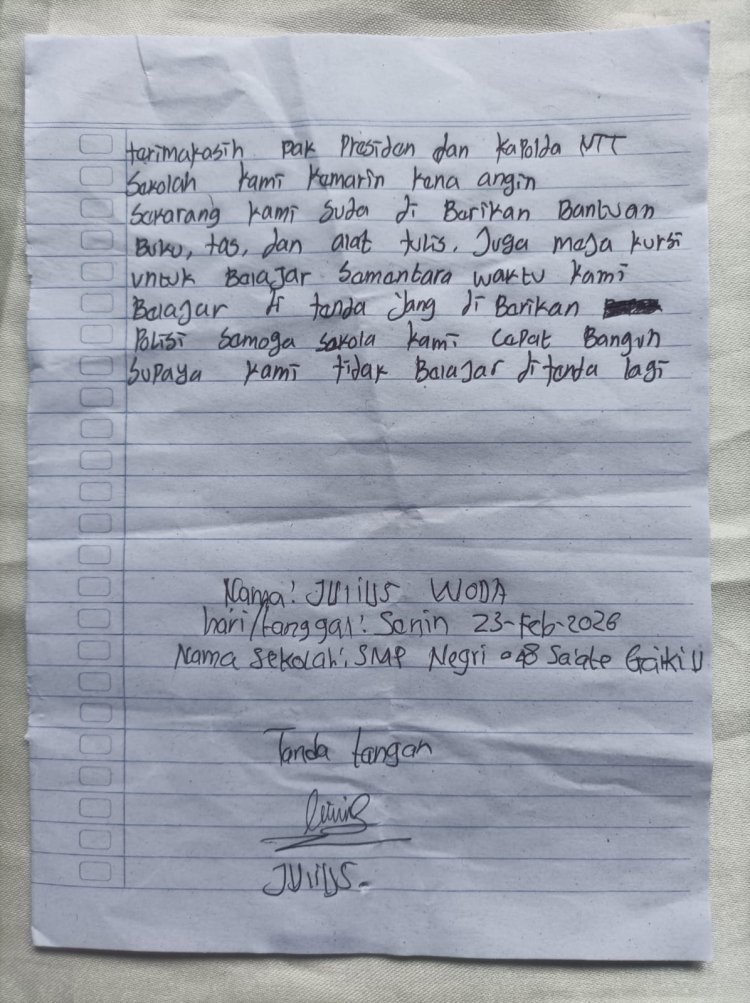 tarimakasih pak Presidan dan kapolda NTT
Sakolah kami kamarin kana angin
Sakarang kami suda di Barikan Bantuan
Buku, tas, dan alat tulis, Juga maja kursi
untuk Balajar Samantara waktu kami
Balajar di tanda jang di Barikan
Polisi Samoga sakola kami capat Bangun
Supaya kami tidak Balajar ditanda lagi
Nama: JUliUS WODA
hari/tanggal: Senin 23-Feb-2026
Nama Sekolah: SMP Negri
Tanda tangan
JUliUS.